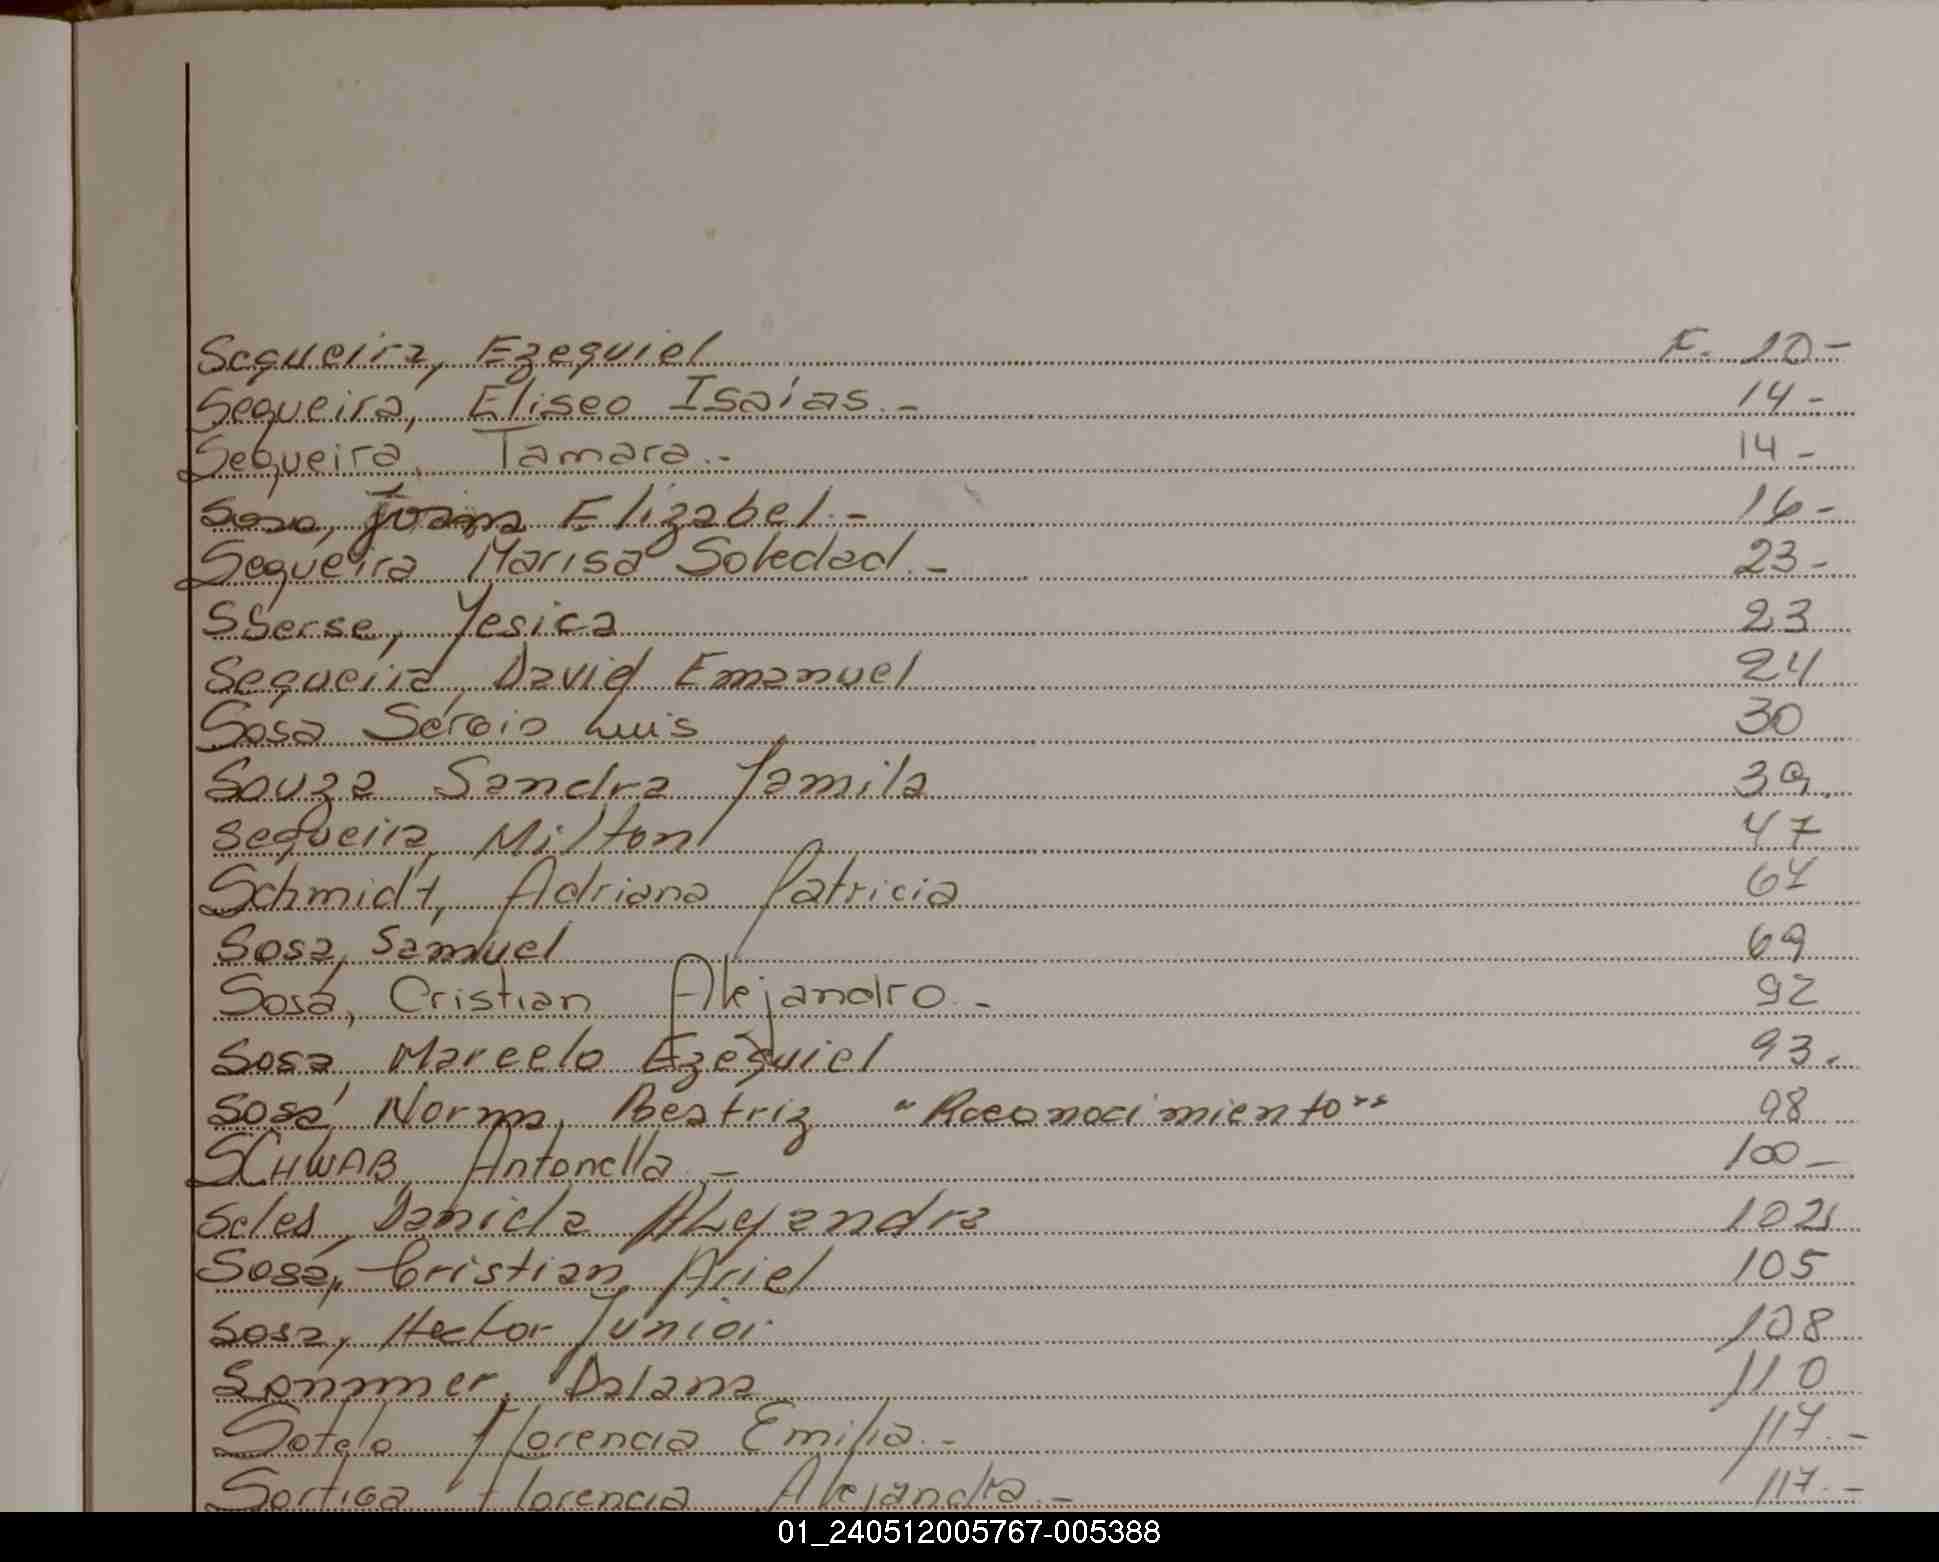 Sequeira, Ezequiel F. 10-
Sequeira, Eliseo Isaías.- 14-
Sequeira, Tamara.- 14-
Sosa, Joana Elizabel.- 16-
Sequeira Marisa Soledad.- 23-
Sberse, Yesica 23
Sequeira, David Emanuel 24
Sosa Sergio Luis 30
Souza Sandra Yamila 39.
Sequeira, Milton 47
Schmidt, Adriana Patricia 67
Sosa, Samuel 69
Sosa, Cristian Alejandro.- 92
Sosa Marcelo Ezequiel 93.
Sosa, Norma, Beatriz "Reconocimiento" 98
SCHWAB, Antonella.- 100-
Seles, Daniela Alejandra 102
Sosa, Cristian, Ariel 105
Sosa, Hector Junior 108
Sommer, Dalana 110
Sotelo Florencia Emilia.- 117.-
Sortiga Florencia Alejandra.- 117.-
01_240512005767-005388